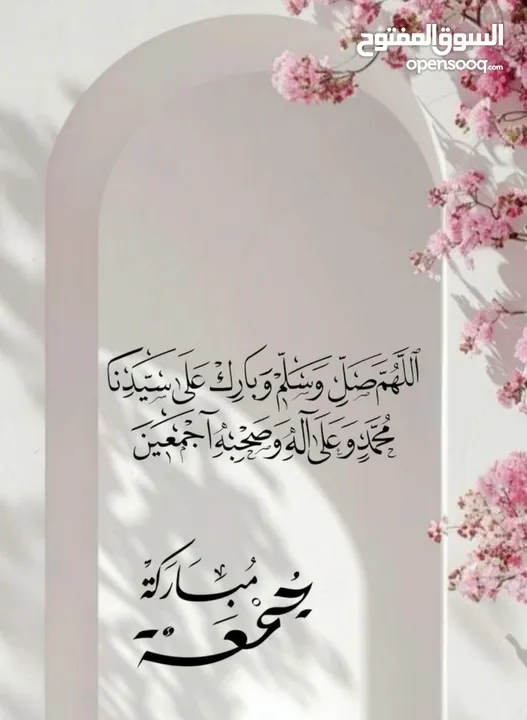 السوق المفتوح
opensooq.com
اللَّهُمَّ صَلِّ وَسَلِّمْ وَبَارِكْ عَلَى سَيِّدِنَا
مُحَمَّدٍ وَعَلَى آلِهِ وَصَحْبِهِ أَجْمَعِينَ
جُمْعَة
مُبَارَكَة